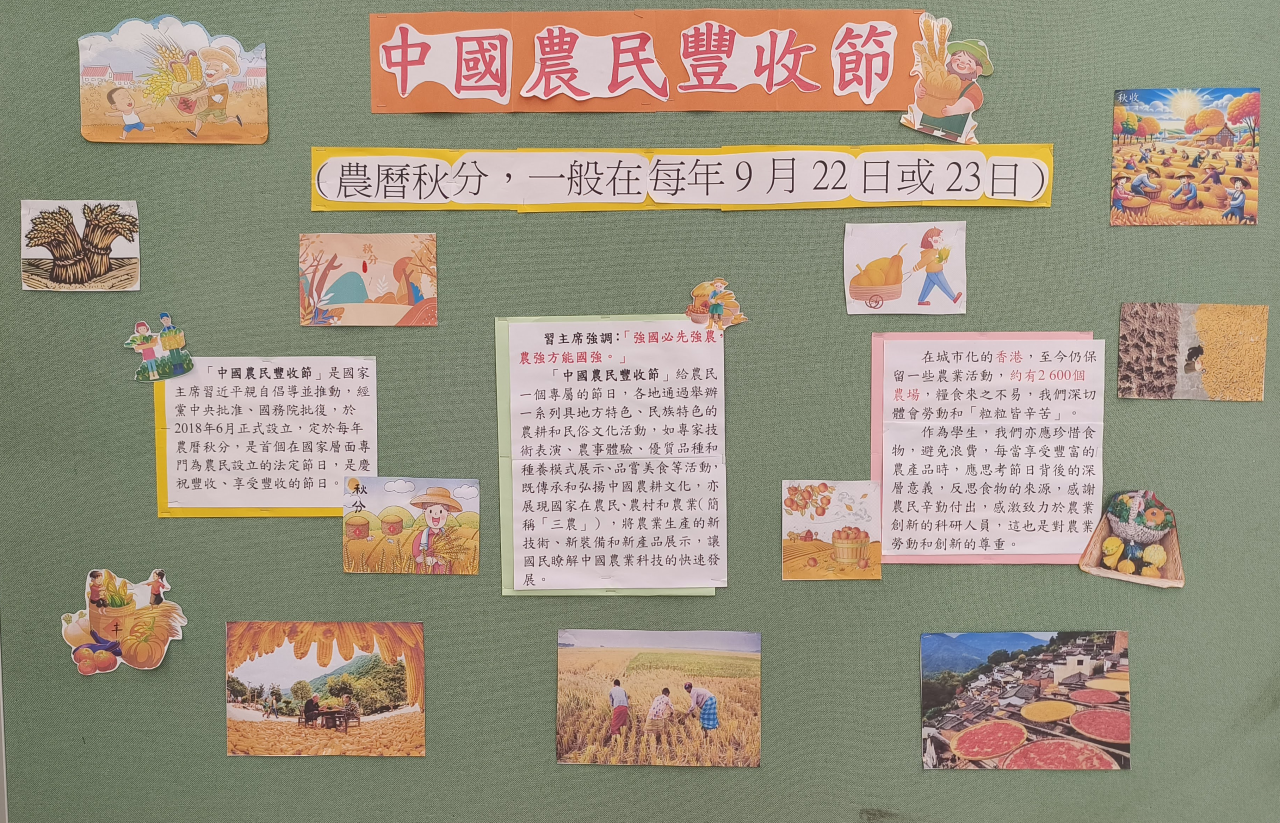 中國農民豐收節
（農曆秋分，一般在每年9月22日或23日）
秋收
秋分
「中國農民豐收節」是國家
主席習近平親自倡導並推動，經
黨中央批准、國務院批復，於
2018年6月正式設立，定於每年
農曆秋分，是首個在國家層面專
門為農民設立的法定節日，是慶
祝豐收、享受豐收的節日。
秋分
習主席強調：「強國必先強農，
農強方能國強。」
「中國農民豐收節」給農民
一個專屬的節日，各地通過舉辦
一系列具地方特色、民族特色的
農耕和民俗文化活動，如專家技
術表演、農事體驗、優質品種和
種養模式展示、品嘗美食等活動，
既傳承和弘揚中國農耕文化，亦
展現國家在農民、農村和農業（簡
稱「三農」），將農業生產的新
技術、新裝備和新產品展示，讓
國民瞭解中國農業科技的快速發
展。
在城市化的香港，至今仍保
留一些農業活動，約有2 600個
農場，糧食來之不易，我們深切
體會勞動和「粒粒皆辛苦」。
作為學生，我們亦應珍惜食
物，避免浪費，每當享受豐富的
農產品時，應思考節日背後的深
層意義，反思食物的來源，感謝
農民辛勤付出，感激致力於農業
創新的科研人員，這也是對農業
勞動和創新的尊重。
丰